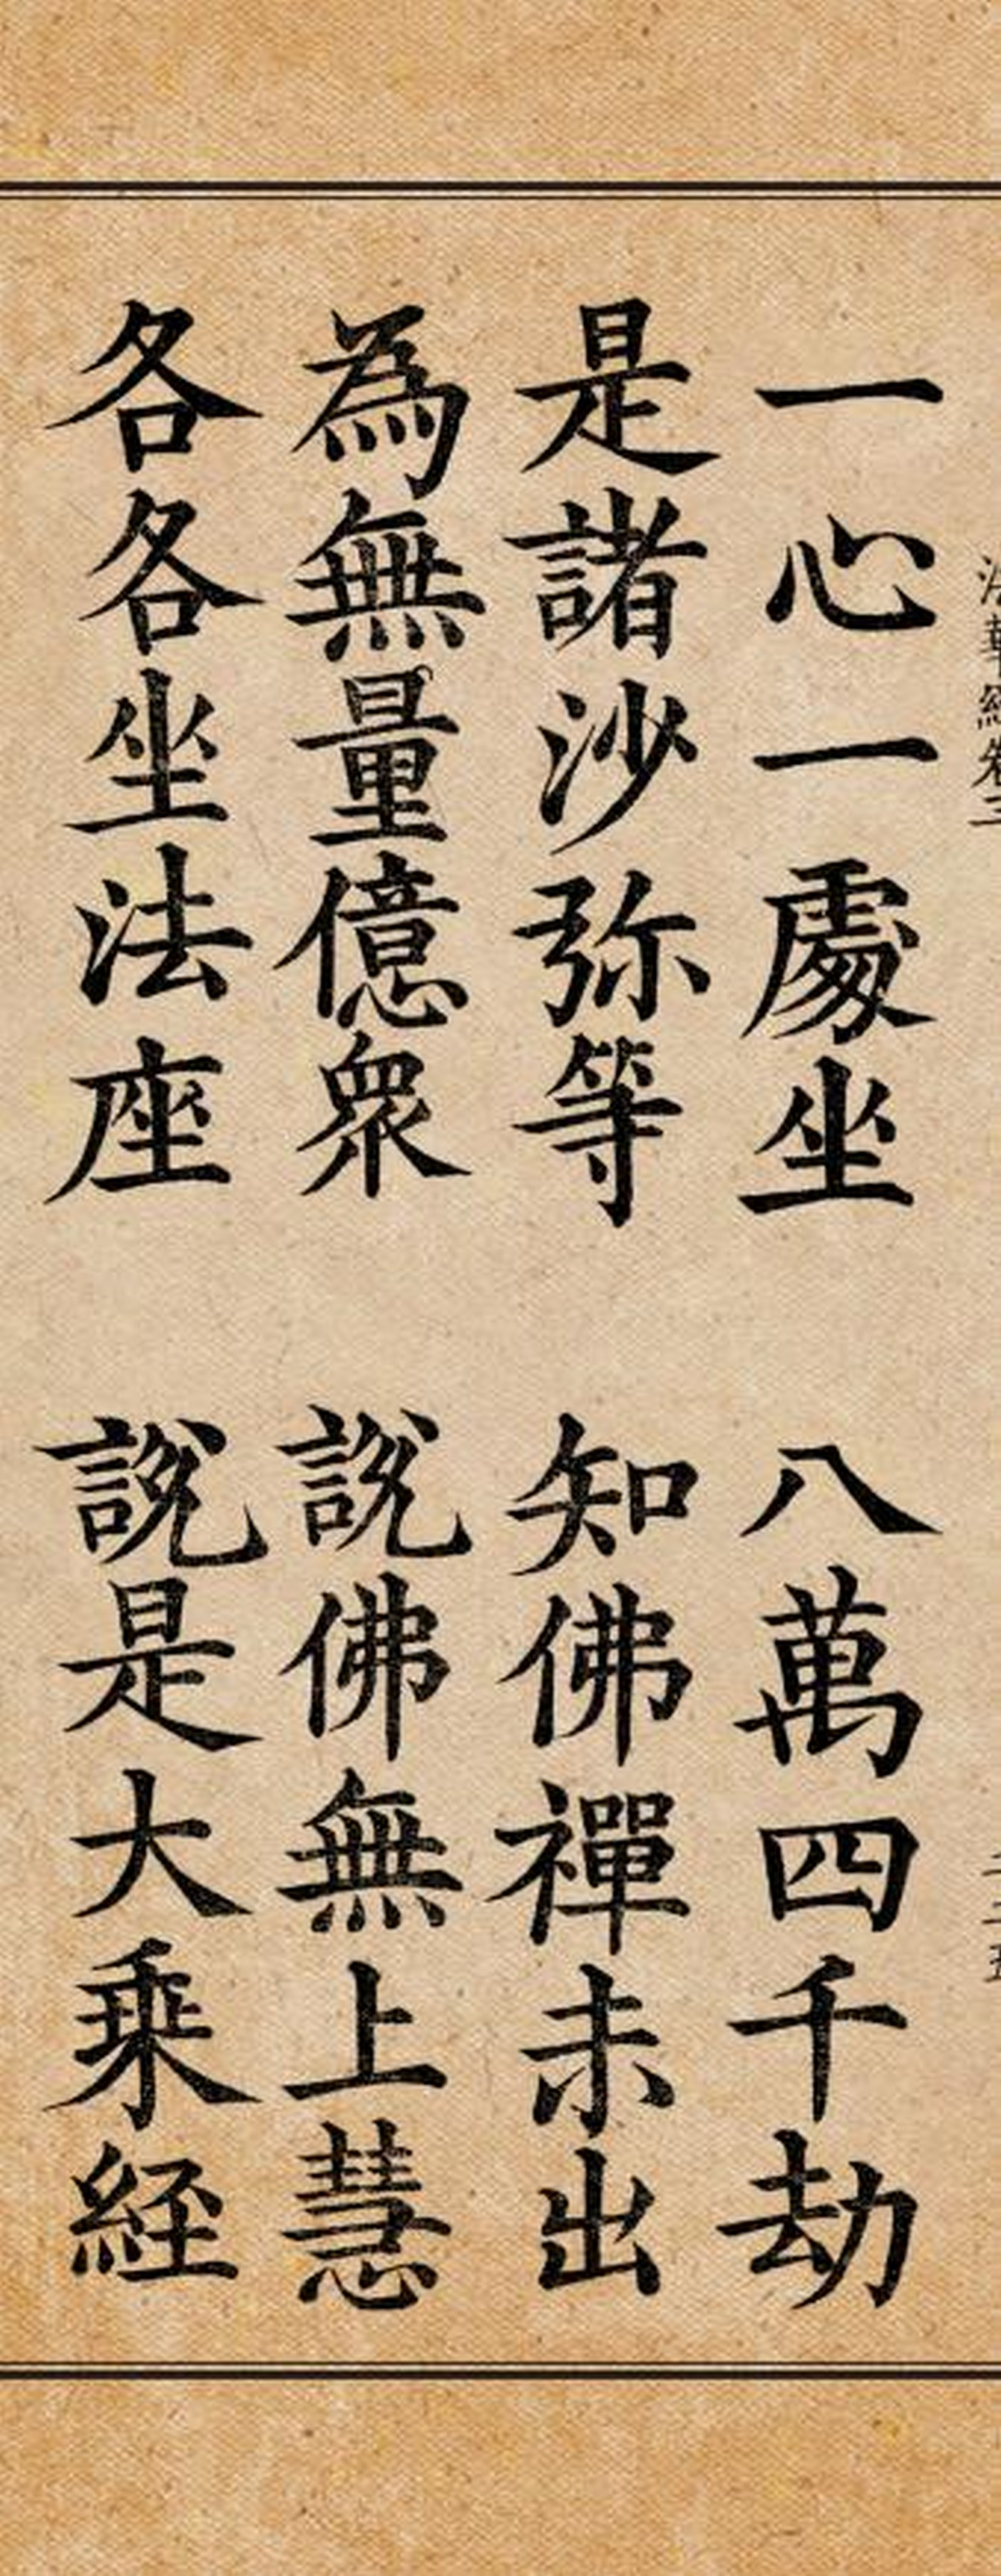 法華經卷三
一心一處坐 八萬四千劫
是諸沙弥等 知佛禪未出
為無量億衆 説佛無上慧
各各坐法座 説是大乗経